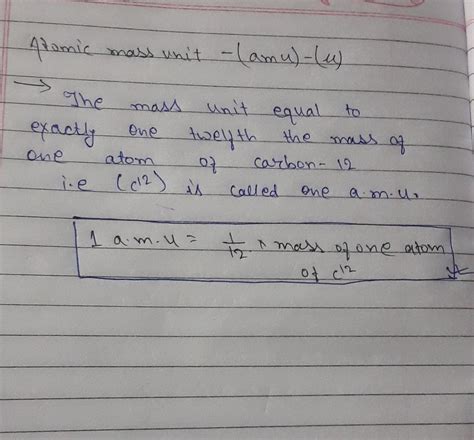 Atomic mass unit -(amu)-(u)
→ The mass unit equal to
exactly one twelfth the mass of
one atom of carbon-12
i.e (c12) is called one a.m.u.
1 a.m.u = 1/12 × mass of one atom
of c12